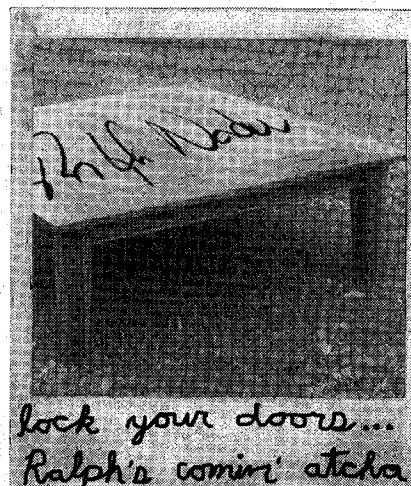 Ralph Nader
lock your doors...
Ralph's comin' atcha